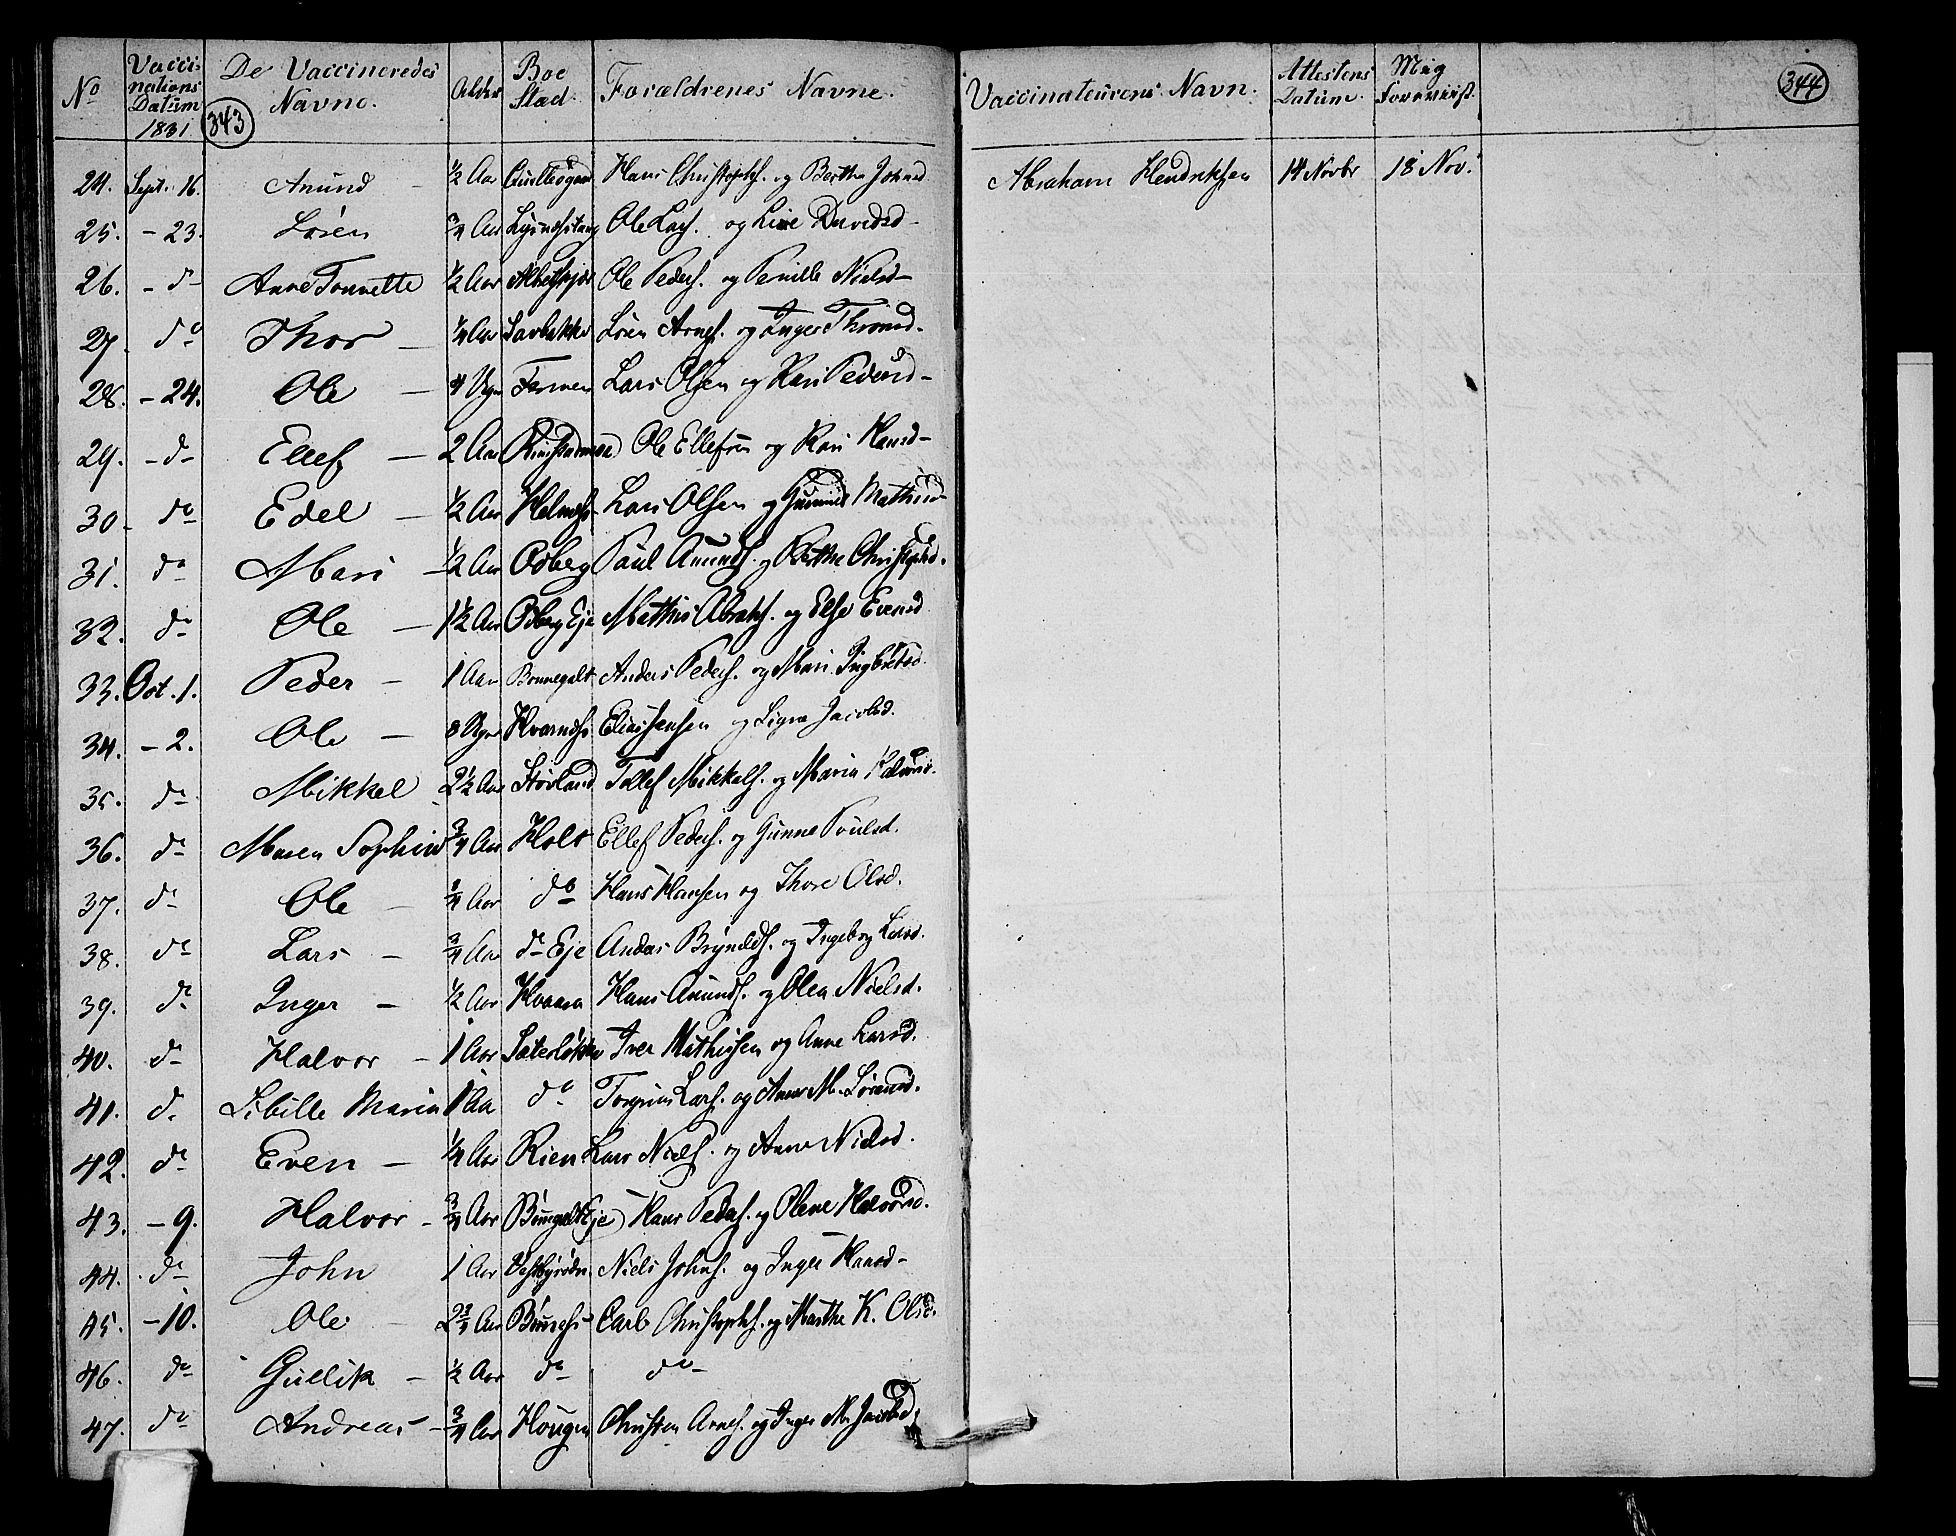 No Vacci-nations Datum 1831 De Vaccineredes Navne. Alder Boe Stæd. Forældrenes Navne. Vaccinateurens Navn. Attestens Datum. Mig Foreviist.
343 344
24. Sept. 16. Anund – 1/2 Aar Hans Christophs. og Berthe Johnsd. Abraham Hendriksen 14 Novbr 18 Nov.
25. – 23. Sören 3/4 Aar Ole Lars. og Live Davidsd–
26. – do Anne Tonnette 1/2 Aar Ole Peders. og Pernille Nielsd–
27. do Thor – 1/4 Aar Sören Arnes. og Inger Thronsd.
28. – 24. Ole – 4 Ugr Farmen Lars Olsen og Kari Pedersd–
29. – do Ellef – 2 Aar Ole Ellefsen og Kari Hansd–
30 – do Edel – 1/2 Aar Lars Olsen og Gunnild Mathisd–
31. do Mari – 1/2 Aar Odberg Paul Anunds. og Berthe Christophsd.
32. do Ole – 1 1/2 Aar Odberg Eje Mathis Abrahs. og Else Evensd
33. Oct. 1. Peder – 1 Aar Anders Peders. og Mari Ingebretsd.
34. – 2. Ole – 8 Ugr Elias Jensen og Signe Jacobsd.
35. do Mikkel 2 1/2 Aar Stövland Tollef Mikkels. og Maria
36. do Maren Sophie 3/4 Aar Holt Ellef Peders. og Gunne Poulsd.
37. do Ole – 3/4 Aar do Hans Hansen og Thore Olsd.
38. do Lars – 3/4 Aar do Eje Anders Brynilds. og Ingeborg Larsd.
39. do Inger – 1/2 Aar Kvaara Hans Anunds. og Olea Nielsd.
40. do Halvor – 1 Aar Sæterløkke Iver Mathissen og Anne Larsd.
41. do Sibille Maria 1 Aar do Torgrim Lars. og Anne M. Sörensd.
42. do Even – 1/4 Aar Rien Lars Niels. og Anne Nielsd.
43. – 9. Halvor – 3/4 Aar Hans Peders. og Olene Halvorsd.
44. do John 1 Aar Niels Johns. og Inger Hansd–
45. – 10. Ole – 2 3/4 Aar Carl Christophs. og Marthe K. Olsd.
46. do Gullik – 1/2 Aar do do
47. do Andreas – 3/4 Aar Hougen Christen Arnes. og Inger M. Jacobsd.